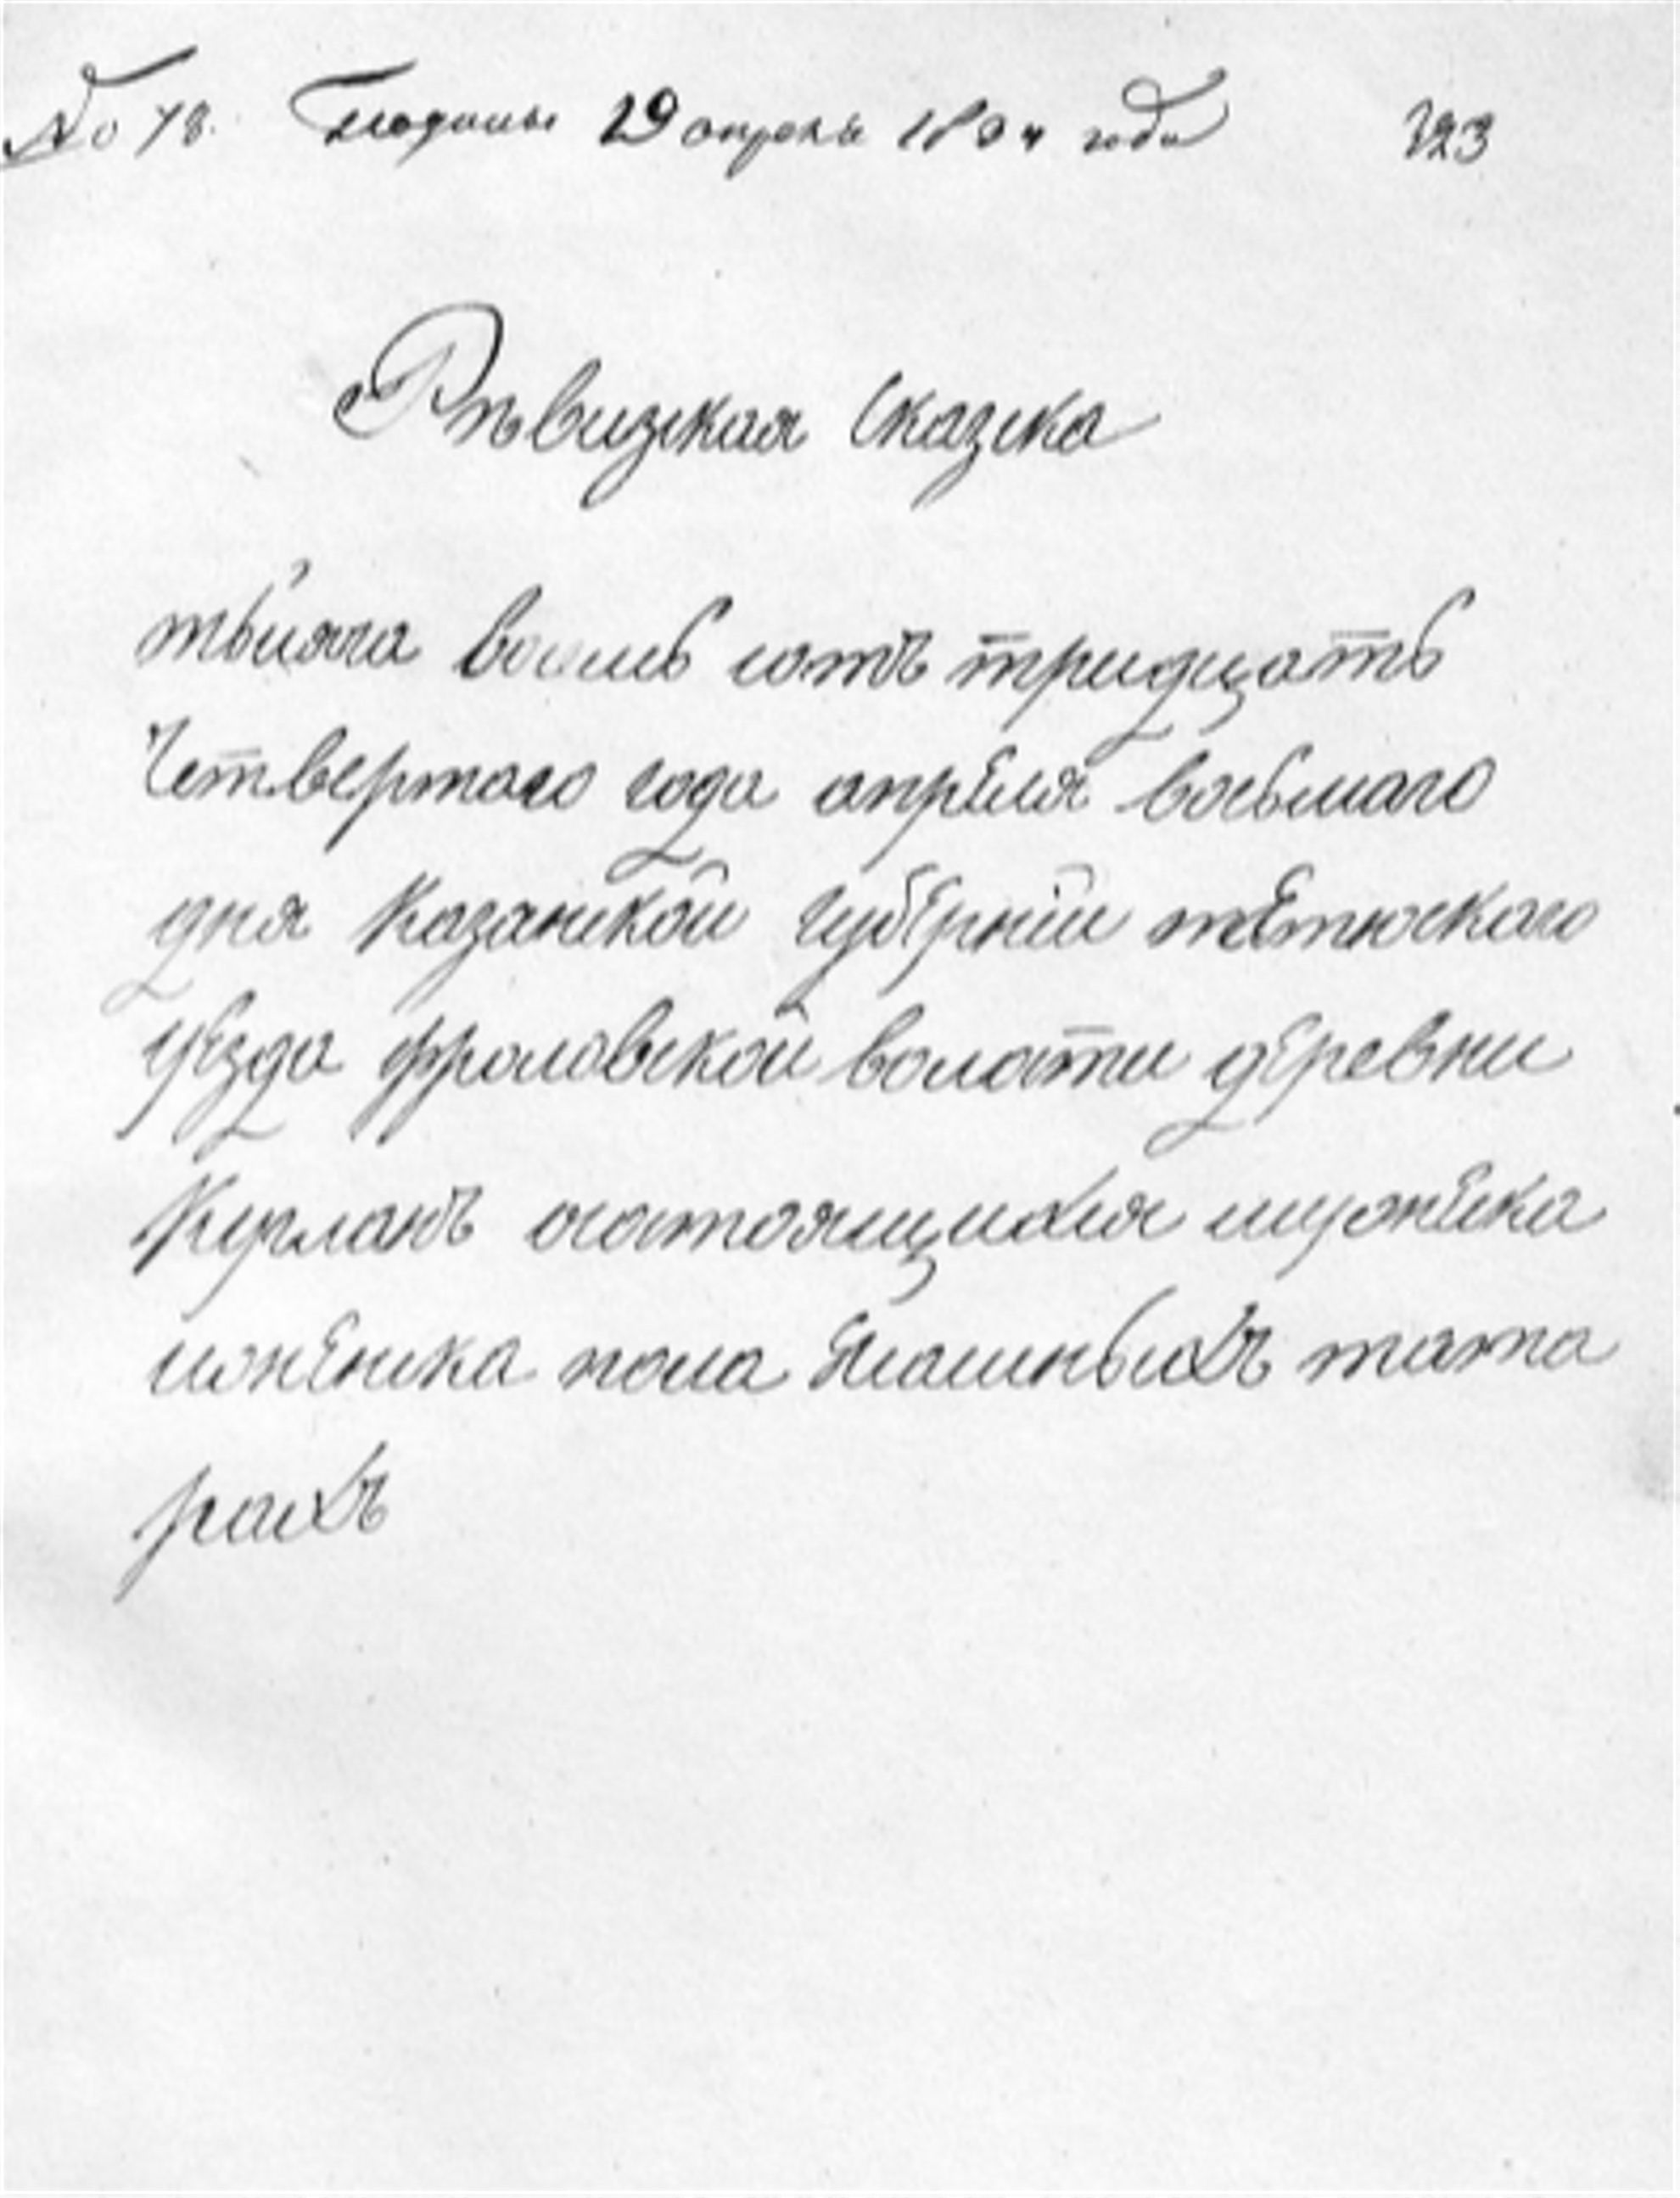 № 78. 29 апреля 1834 года 323
Рѣвизская Сказка
тысяча восемь сотъ тридцать
Четвертого года апреля восьмаго
дня Казанской губернии тетюского
уезда фроловской волости деревни
Курланъ осотоящихся мужеска
иженска пола Ясашныхъ тата
рахъ